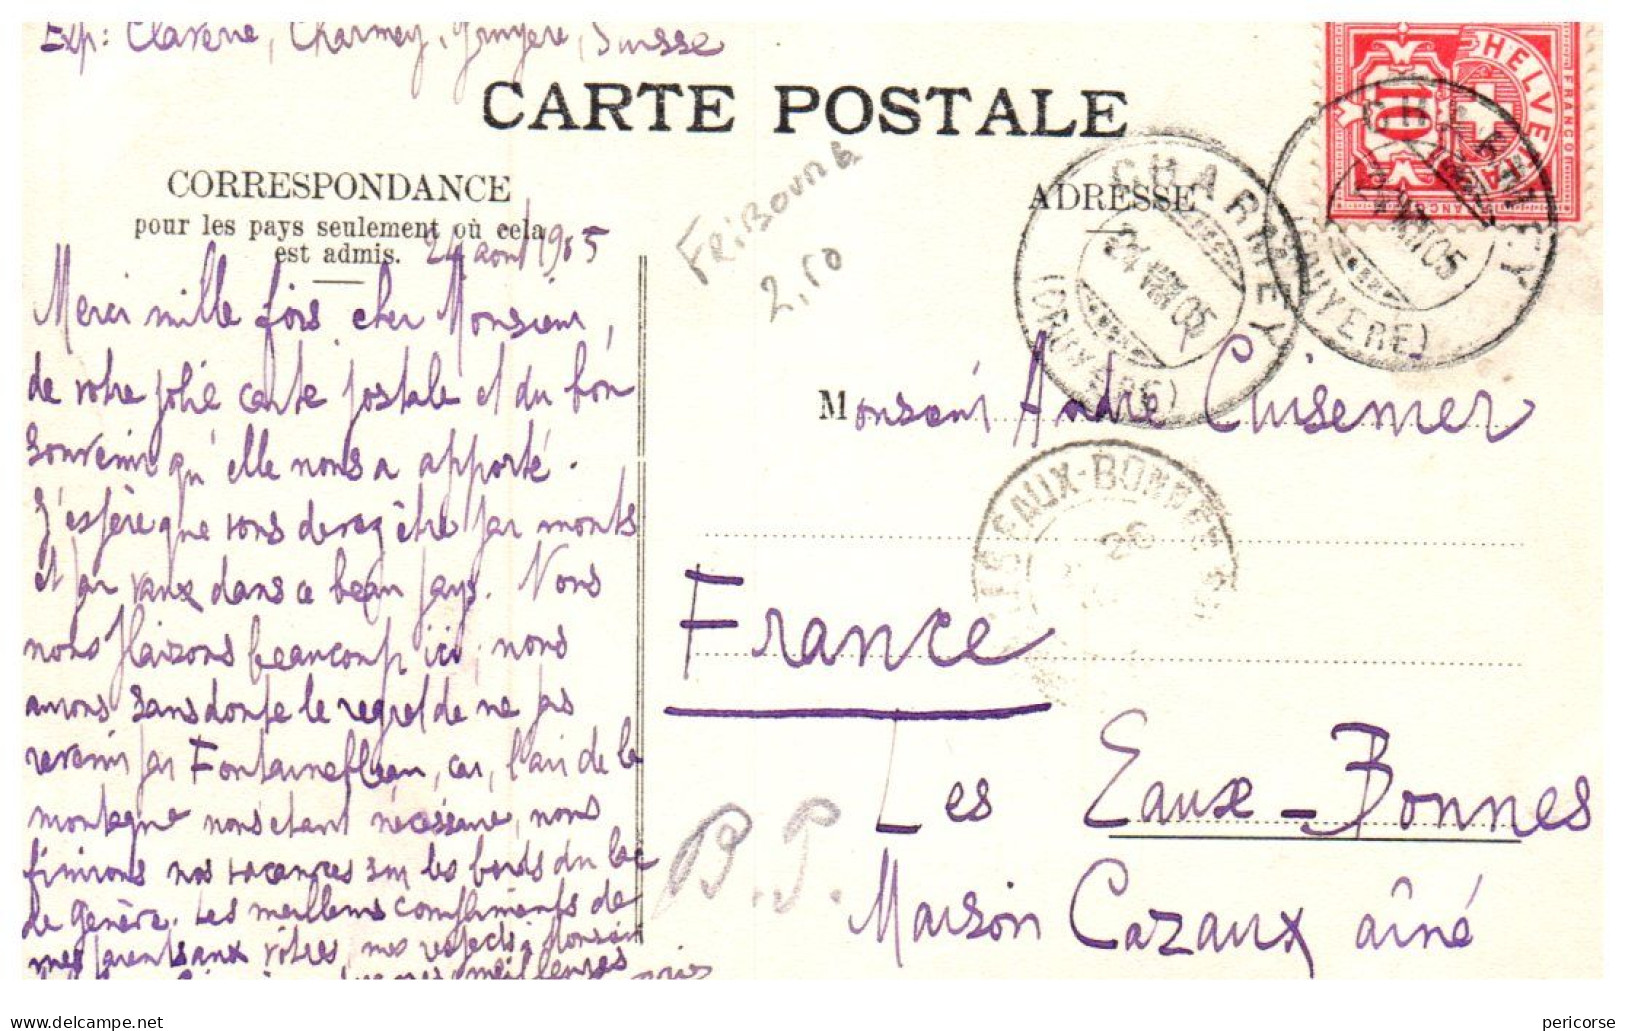 Exp: Clarène, Charmey, Gruyère, Suisse
CARTE POSTALE
CORRESPONDANCE
pour les pays seulement où cela
est admis.
24 août 1905
ADRESSE
FRIBOURG
2,50
HELVETIA
FRANCO
10
CHARMEY
24 VIII 05
(GRUYÈRE)
CHARMEY
24 VIII 05
(GRUYÈRE)
Merci mille fois cher Monsieur,
de votre jolie carte postale et du bon
souvenir qu'elle nous a apporté.
J'espère que vous devez être par monts
et par vaux dans ce beau pays. Nous
nous plaisons beaucoup ici, nous
aurons sans doute le regret de ne pas
revenir par Fontainebleau, car, l'air de la
montagne nous étant nécessaire, nous
finirons nos vacances sur les bords du lac
de Genève. Les meilleurs compliments de
mes parents aux vôtres, mes respects à Monsieur
meilleures
Monsieur André Cuisenier
LES EAUX-BONNES
26
France
Les Eaux-Bonnes
Maison Cazaux aîné
B.P.
www.delcampe.net
pericorse